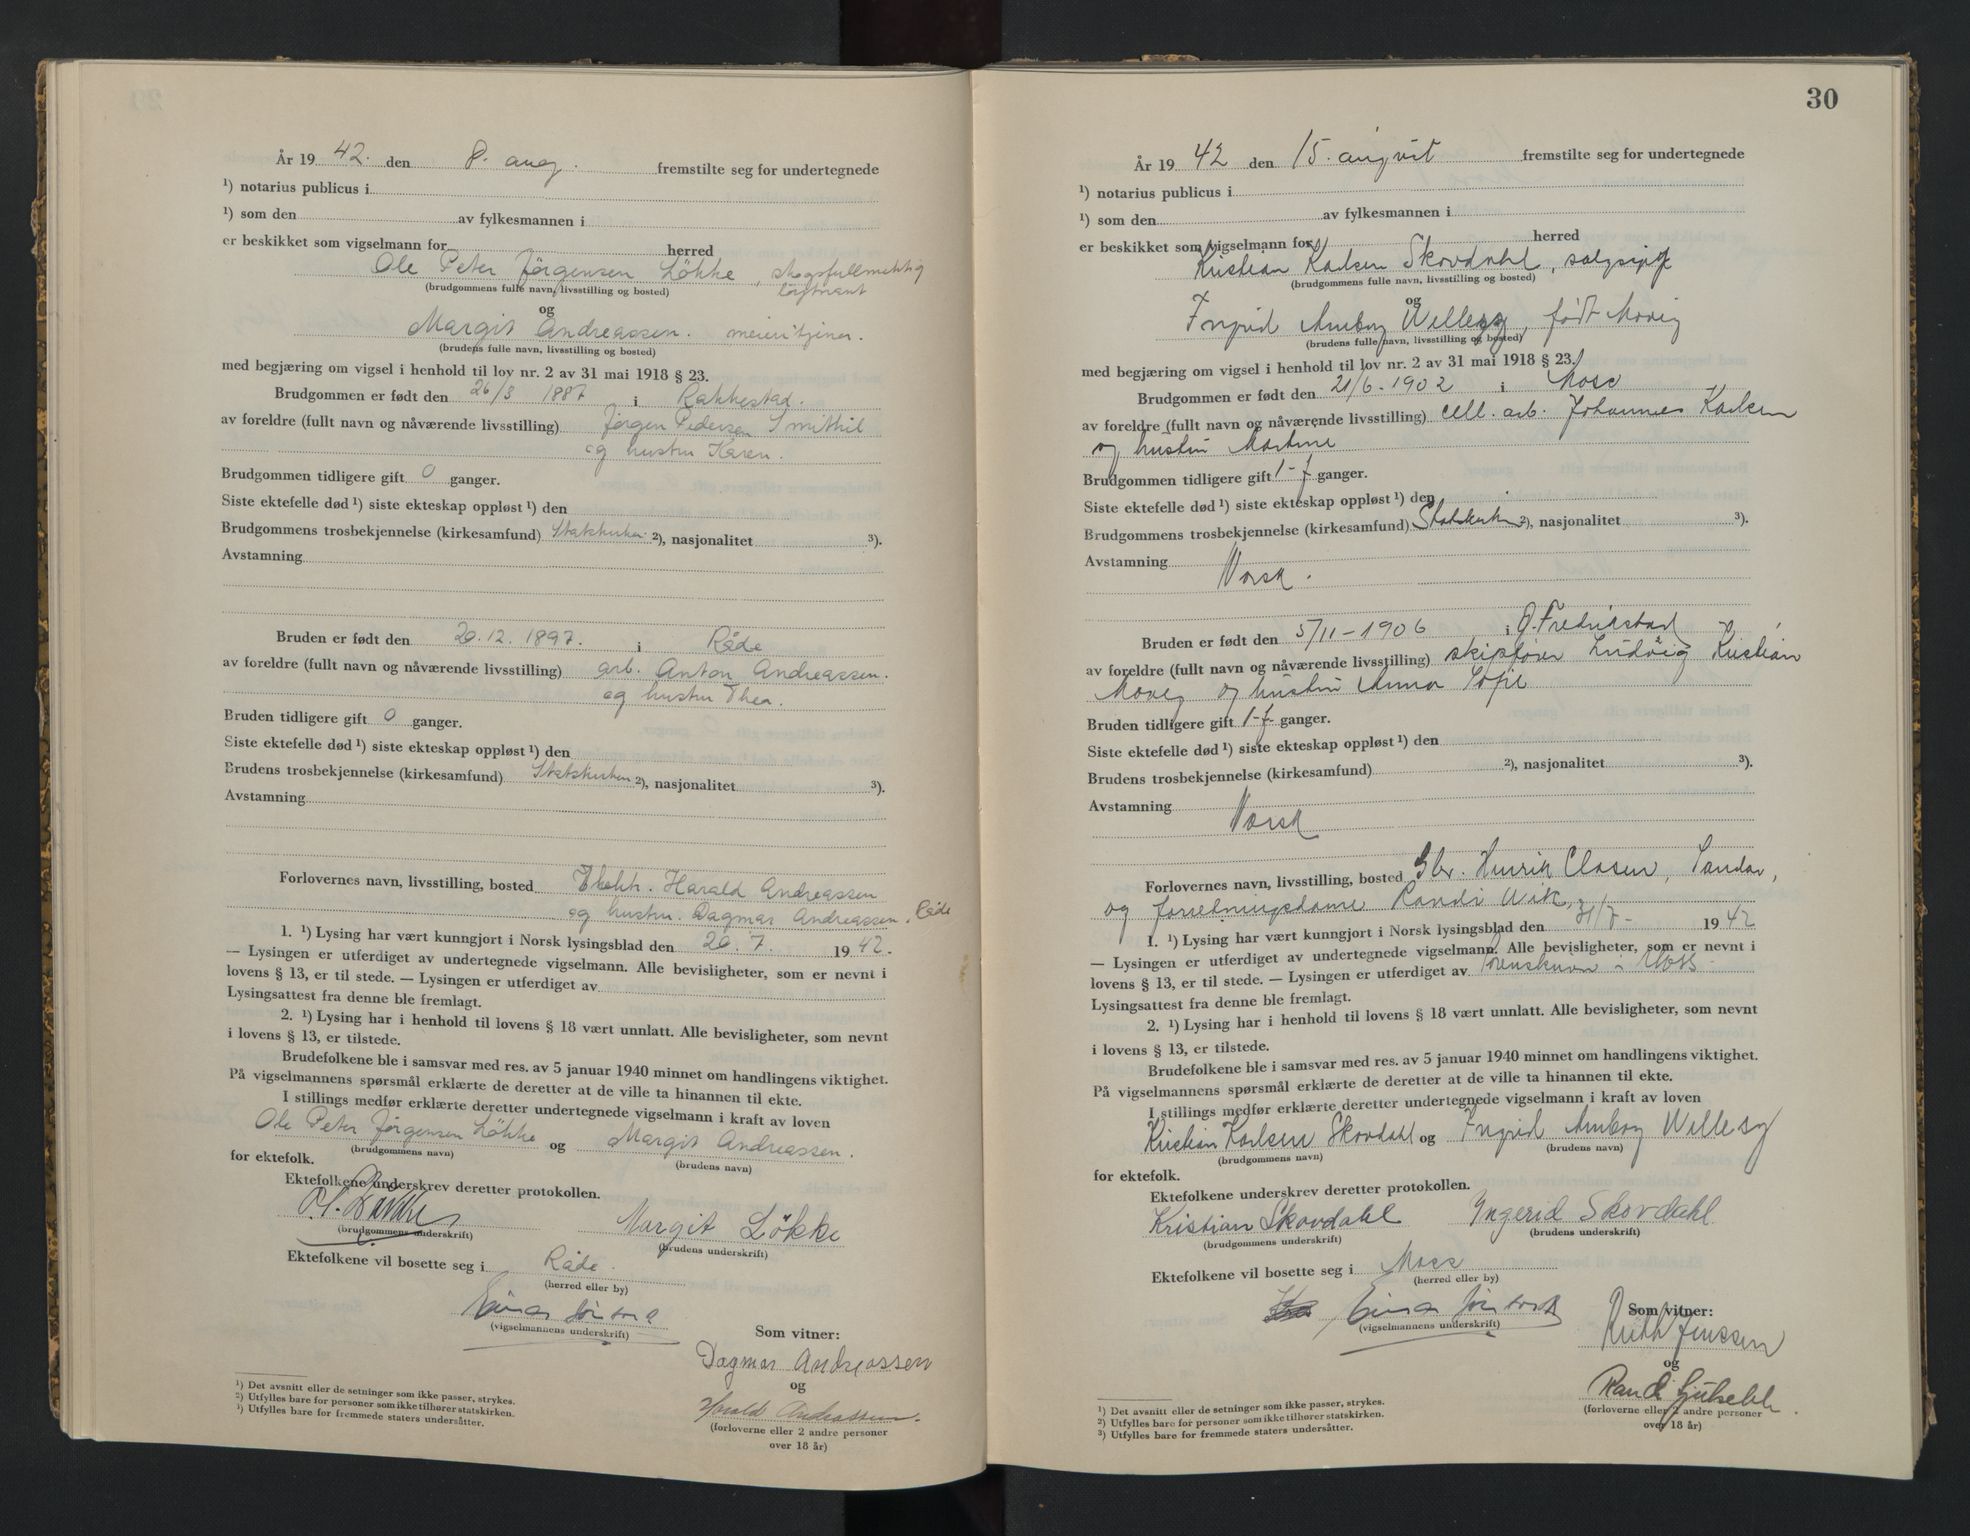 År 19 42. den 8. aug. fremstilte seg for undertegnede
¹) notarius publicus i
¹) som den av fylkesmannen i
er beskikket som vigselmann for herred
Ole Peter Jörgensen Lökke, skogsfullmektig
löytnant
(brudgommens fulle navn, livsstilling og bosted)
og
Margit Andreassen. meieritjener.
(brudens fulle navn, livsstilling og bosted)
med begjæring om vigsel i henhold til lov nr. 2 av 31 mai 1918 § 23.
Brudgommen er født den 26/3 1887 i Rakkestad.
av foreldre (fullt navn og nåværende livsstilling) Jörgen Pedersen
og hustru Karen.
Brudgommen tidligere gift 0 ganger.
Siste ektefelle død ¹) siste ekteskap oppløst ¹) den
Brudgommens trosbekjennelse (kirkesamfund) Statskirken ²), nasjonalitet ³).
Avstamning
Bruden er født den 20.12.1897. i Råde
av foreldre (fullt navn og nåværende livsstilling) arb. Anton Andreassen.
og hustru Thea.
Bruden tidligere gift 0 ganger.
Siste ektefelle død ¹) siste ekteskap oppløst ¹) den
Brudens trosbekjennelse (kirkesamfund) Statskirken ²), nasjonalitet ³).
Avstamning
Forlovernes navn, livsstilling, bosted Harald Andreassen
og hustru. Dagmar Andreassen, Råde
1. ¹) Lysing har vært kunngjort i Norsk lysingsblad den 20.7. 1942.
— Lysingen er utferdiget av undertegnede vigselmann. Alle bevisligheter, som er nevnt i
lovens § 13, er til stede. — Lysingen er utferdiget av
Lysingsattest fra denne ble fremlagt.
2. ¹) Lysing har i henhold til lovens § 18 vært unnlatt. Alle bevisligheter, som nevnt
i lovens § 13, er tilstede.
Brudefolkene ble i samsvar med res. av 5 januar 1940 minnet om handlingens viktighet.
På vigselmannens spørsmål erklærte de deretter at de ville ta hinannen til ekte.
I stillings medfør erklærte deretter undertegnede vigselmann i kraft av loven
Ole Peter Jörgensen Lökke og Margit Andreassen.
(brudgommens navn) (brudens navn)
for ektefolk.
Ektefolkene underskrev deretter protokollen.
Margit Lökke
(brudgommens underskrift) (brudens underskrift)
Ektefolkene vil bosette seg i Råde.
(herred eller by)
(vigselmannens underskrift)
Som vitner:
Dagmar Andreassen
og
Harald Andreassen.
(forloverne eller 2 andre personer
over 18 år)
¹) Det avsnitt eller de setninger som ikke passer, strykes.
²) Utfylles bare for personer som ikke tilhører statskirken.
³) Utfylles bare for fremmede staters undersåtter.
30
År 19 42 den 15. august fremstilte seg for undertegnede
¹) notarius publicus i
¹) som den av fylkesmannen i
er beskikket som vigselmann for herred
Kristian Karlsen Skovdahl, salgssjef
(brudgommens fulle navn, livsstilling og bosted)
og
Ingrid Amborg Willesy, født Movig
(brudens fulle navn, livsstilling og bosted)
med begjæring om vigsel i henhold til lov nr. 2 av 31 mai 1918 § 23.
Brudgommen er født den 21/6-1902 i Moss
av foreldre (fullt navn og nåværende livsstilling) cell. arb. Johannes Karlsen
og hustru Martine
Brudgommen tidligere gift 1-f ganger.
Siste ektefelle død ¹) siste ekteskap oppløst ¹) den
Brudgommens trosbekjennelse (kirkesamfund) Statskirken ²), nasjonalitet ³).
Avstamning
Norsk.
Bruden er født den 5/11-1906 i Ø. Fredrikstad
av foreldre (fullt navn og nåværende livsstilling) skipsfører Ludvig Kristian
Movig og hustru Anna Sofie
Bruden tidligere gift 1-f ganger.
Siste ektefelle død ¹) siste ekteskap oppløst ¹) den
Brudens trosbekjennelse (kirkesamfund) ²), nasjonalitet ³).
Avstamning
Norsk
Forlovernes navn, livsstilling, bosted Henrik Clasen, Sandar,
og forretningsdame Randi Wik.
1. ¹) Lysing har vært kunngjort i Norsk lysingsblad den 31/7- 1942
— Lysingen er utferdiget av undertegnede vigselmann. Alle bevisligheter, som er nevnt i
lovens § 13, er til stede. — Lysingen er utferdiget av Sorenskriver i Moss
Lysingsattest fra denne ble fremlagt.
2. ¹) Lysing har i henhold til lovens § 18 vært unnlatt. Alle bevisligheter, som nevnt
i lovens § 13, er tilstede.
Brudefolkene ble i samsvar med res. av 5 januar 1940 minnet om handlingens viktighet.
På vigselmannens spørsmål erklærte de deretter at de ville ta hinannen til ekte.
I stillings medfør erklærte deretter undertegnede vigselmann i kraft av loven
Kristian Karlsen Skovdahl og Ingrid Amborg Willesy
(brudgommens navn) (brudens navn)
for ektefolk.
Ektefolkene underskrev deretter protokollen.
Kristian Skovdahl Ingerid Skovdahl
(brudgommens underskrift) (brudens underskrift)
Ektefolkene vil bosette seg i Moss
(herred eller by)
(vigselmannens underskrift)
Som vitner:
Ruth Jenssen
og
Randi
(forloverne eller 2 andre personer
over 18 år)
¹) Det avsnitt eller de setninger som ikke passer, strykes.
²) Utfylles bare for personer som ikke tilhører statskirken.
³) Utfylles bare for fremmede staters undersåtter.